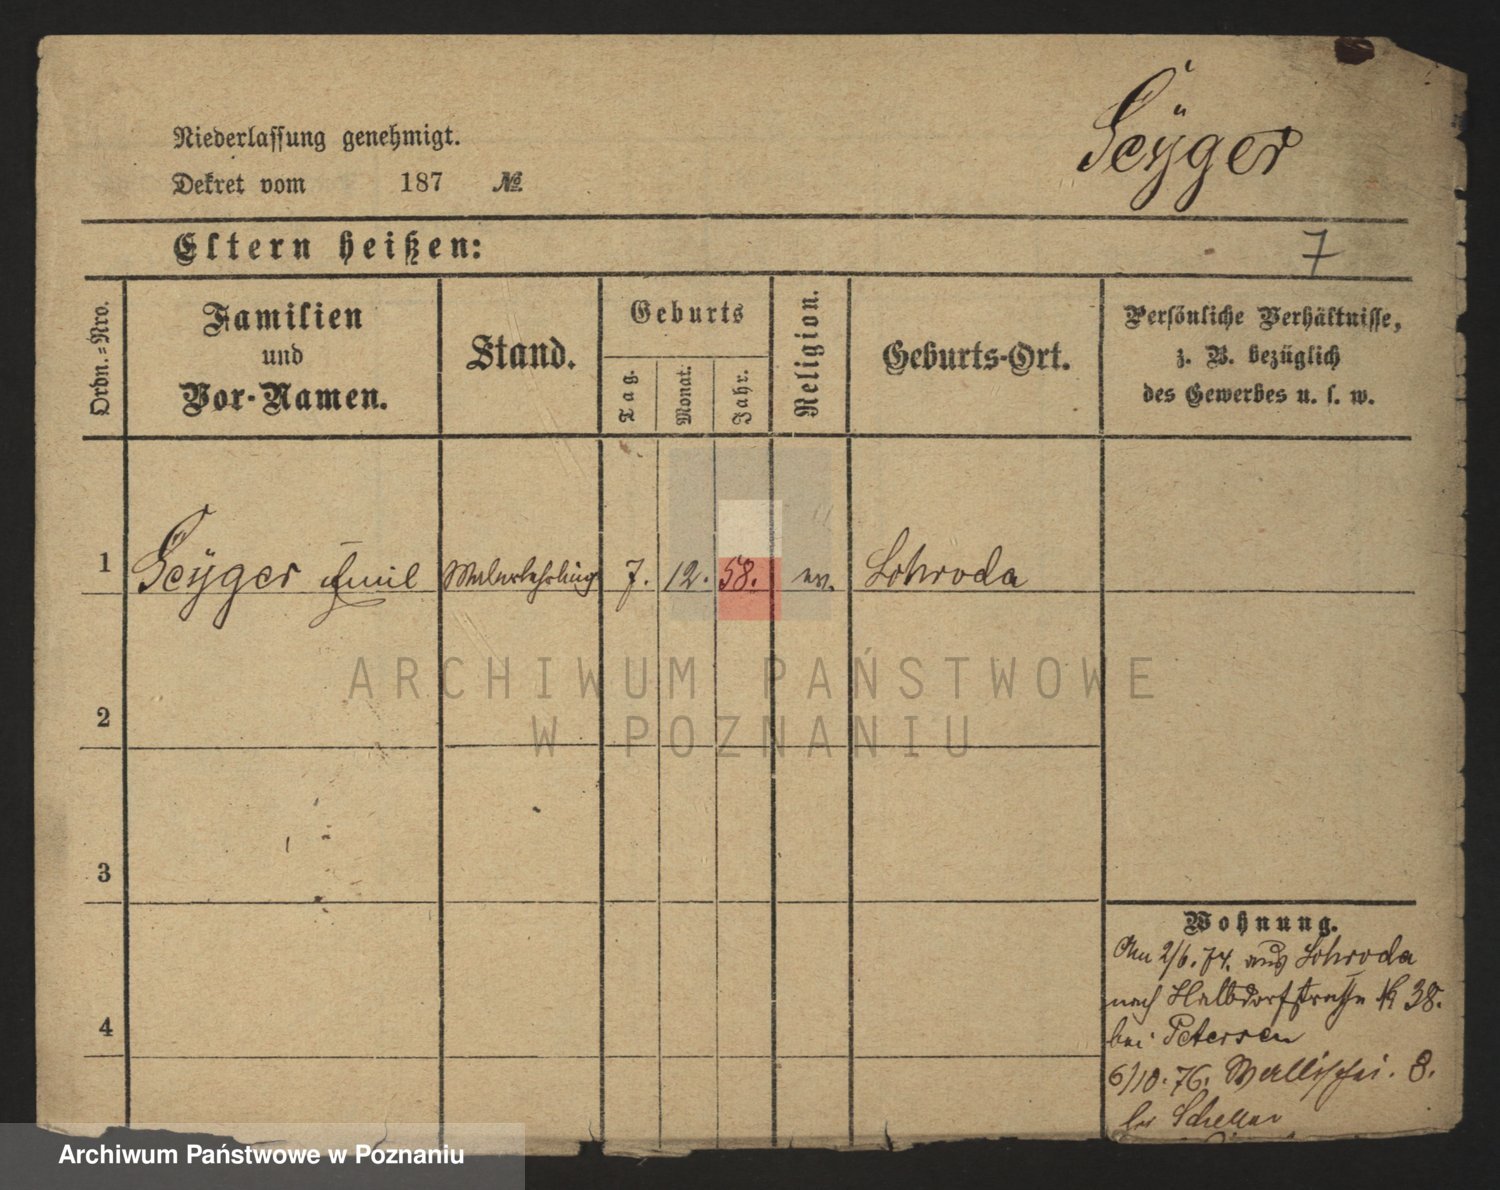 Geÿger
Niederlassung genehmigt.
Dekret vom 187 №
Eltern heißen:
7
Ordn.=Nro.
Familien
und
Vor-Namen.
Stand.
Geburts
Tag.
Monat.
Jahr.
Religion.
Geburts-Ort.
Persönliche Verhältnisse,
z. B. bezüglich
des Gewerbes u. s. w.
1 Geÿger Emil Malerlehrling 7. 12. 58. ev. Schroda
ARCHIWUM PAŃSTWOWE
W POZNANIU
2
3
4
Wohnung.
Am 2/6. 74. aus Schroda
nach Halbdorfstraße № 38.
bei Petersen
6/10. 76. Wallischei. 8.
bei
Archiwum Państwowe w Poznaniu